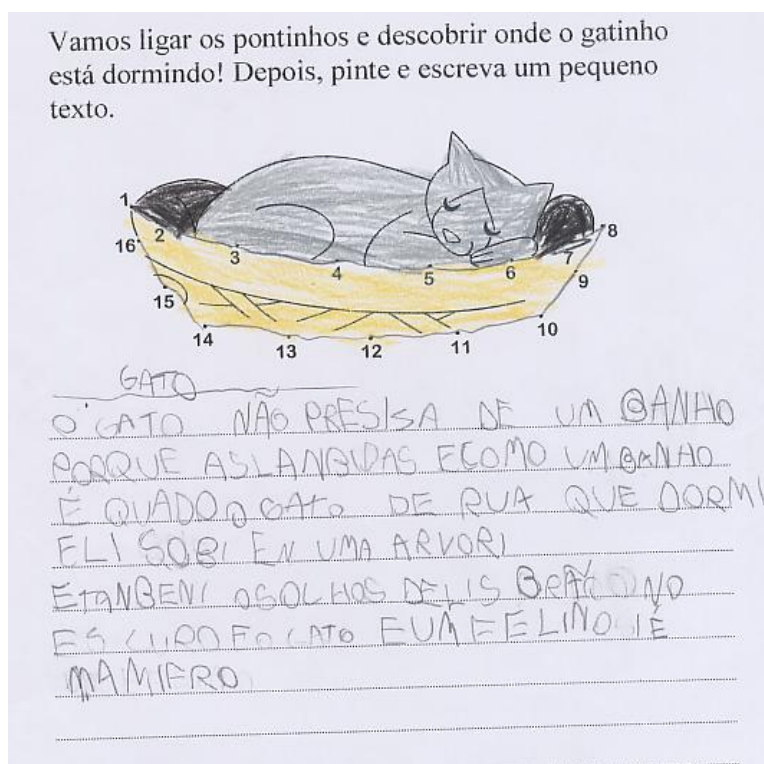 Vamos ligar os pontinhos e descobrir onde o gatinho
está dormindo! Depois, pinte e escreva um pequeno
texto.
1
8
16
2
3
4
5
6
7
9
15
14
13
12
11
10
GATO
O GATO NÃO PRESISA DE UM BANHO
PORQUE ASLANBIDAS ECOMO UM BANHO
É QUADO O GATO DE RUA QUE DORMI
ELI SOBI EN UMA ARVORI
ETANBENI OSOLHOS DELIS BRÃO NO
ESCURO E O GATO EUM FELINO IÉ
MAMIFRO